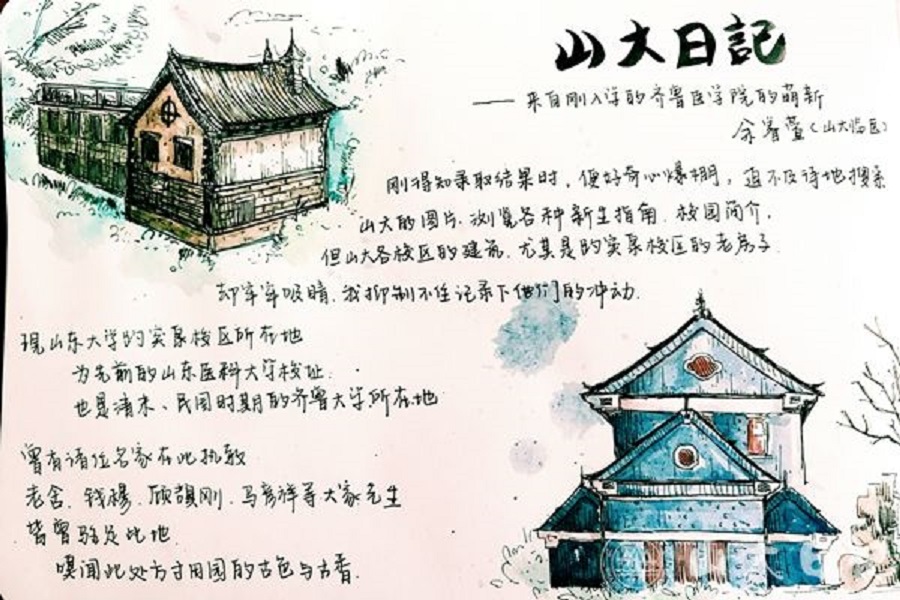 山大日記
—— 来自刚入学的齐鲁医学院的萌新
余睿萱(山大临医)
刚得知录取结果时,便好奇心爆棚,迫不及待地搜索
山大的图片.浏览各种新生指南.校园简介.
但山大各校区的建筑.尤其是趵突泉校区的老房子.
却牢牢吸睛.我抑制不住记录下他们的冲动.
现山东大学趵突泉校区所在地
为先前的山东医科大学校址.
也是清末、民国时期的齐鲁大学所在地
曾有诸位名家在此执教
老舍.钱穆.顾颉刚.马彦祥等大家先生
皆曾驻足此地.
嗅闻此处方寸田园的古色与古香.